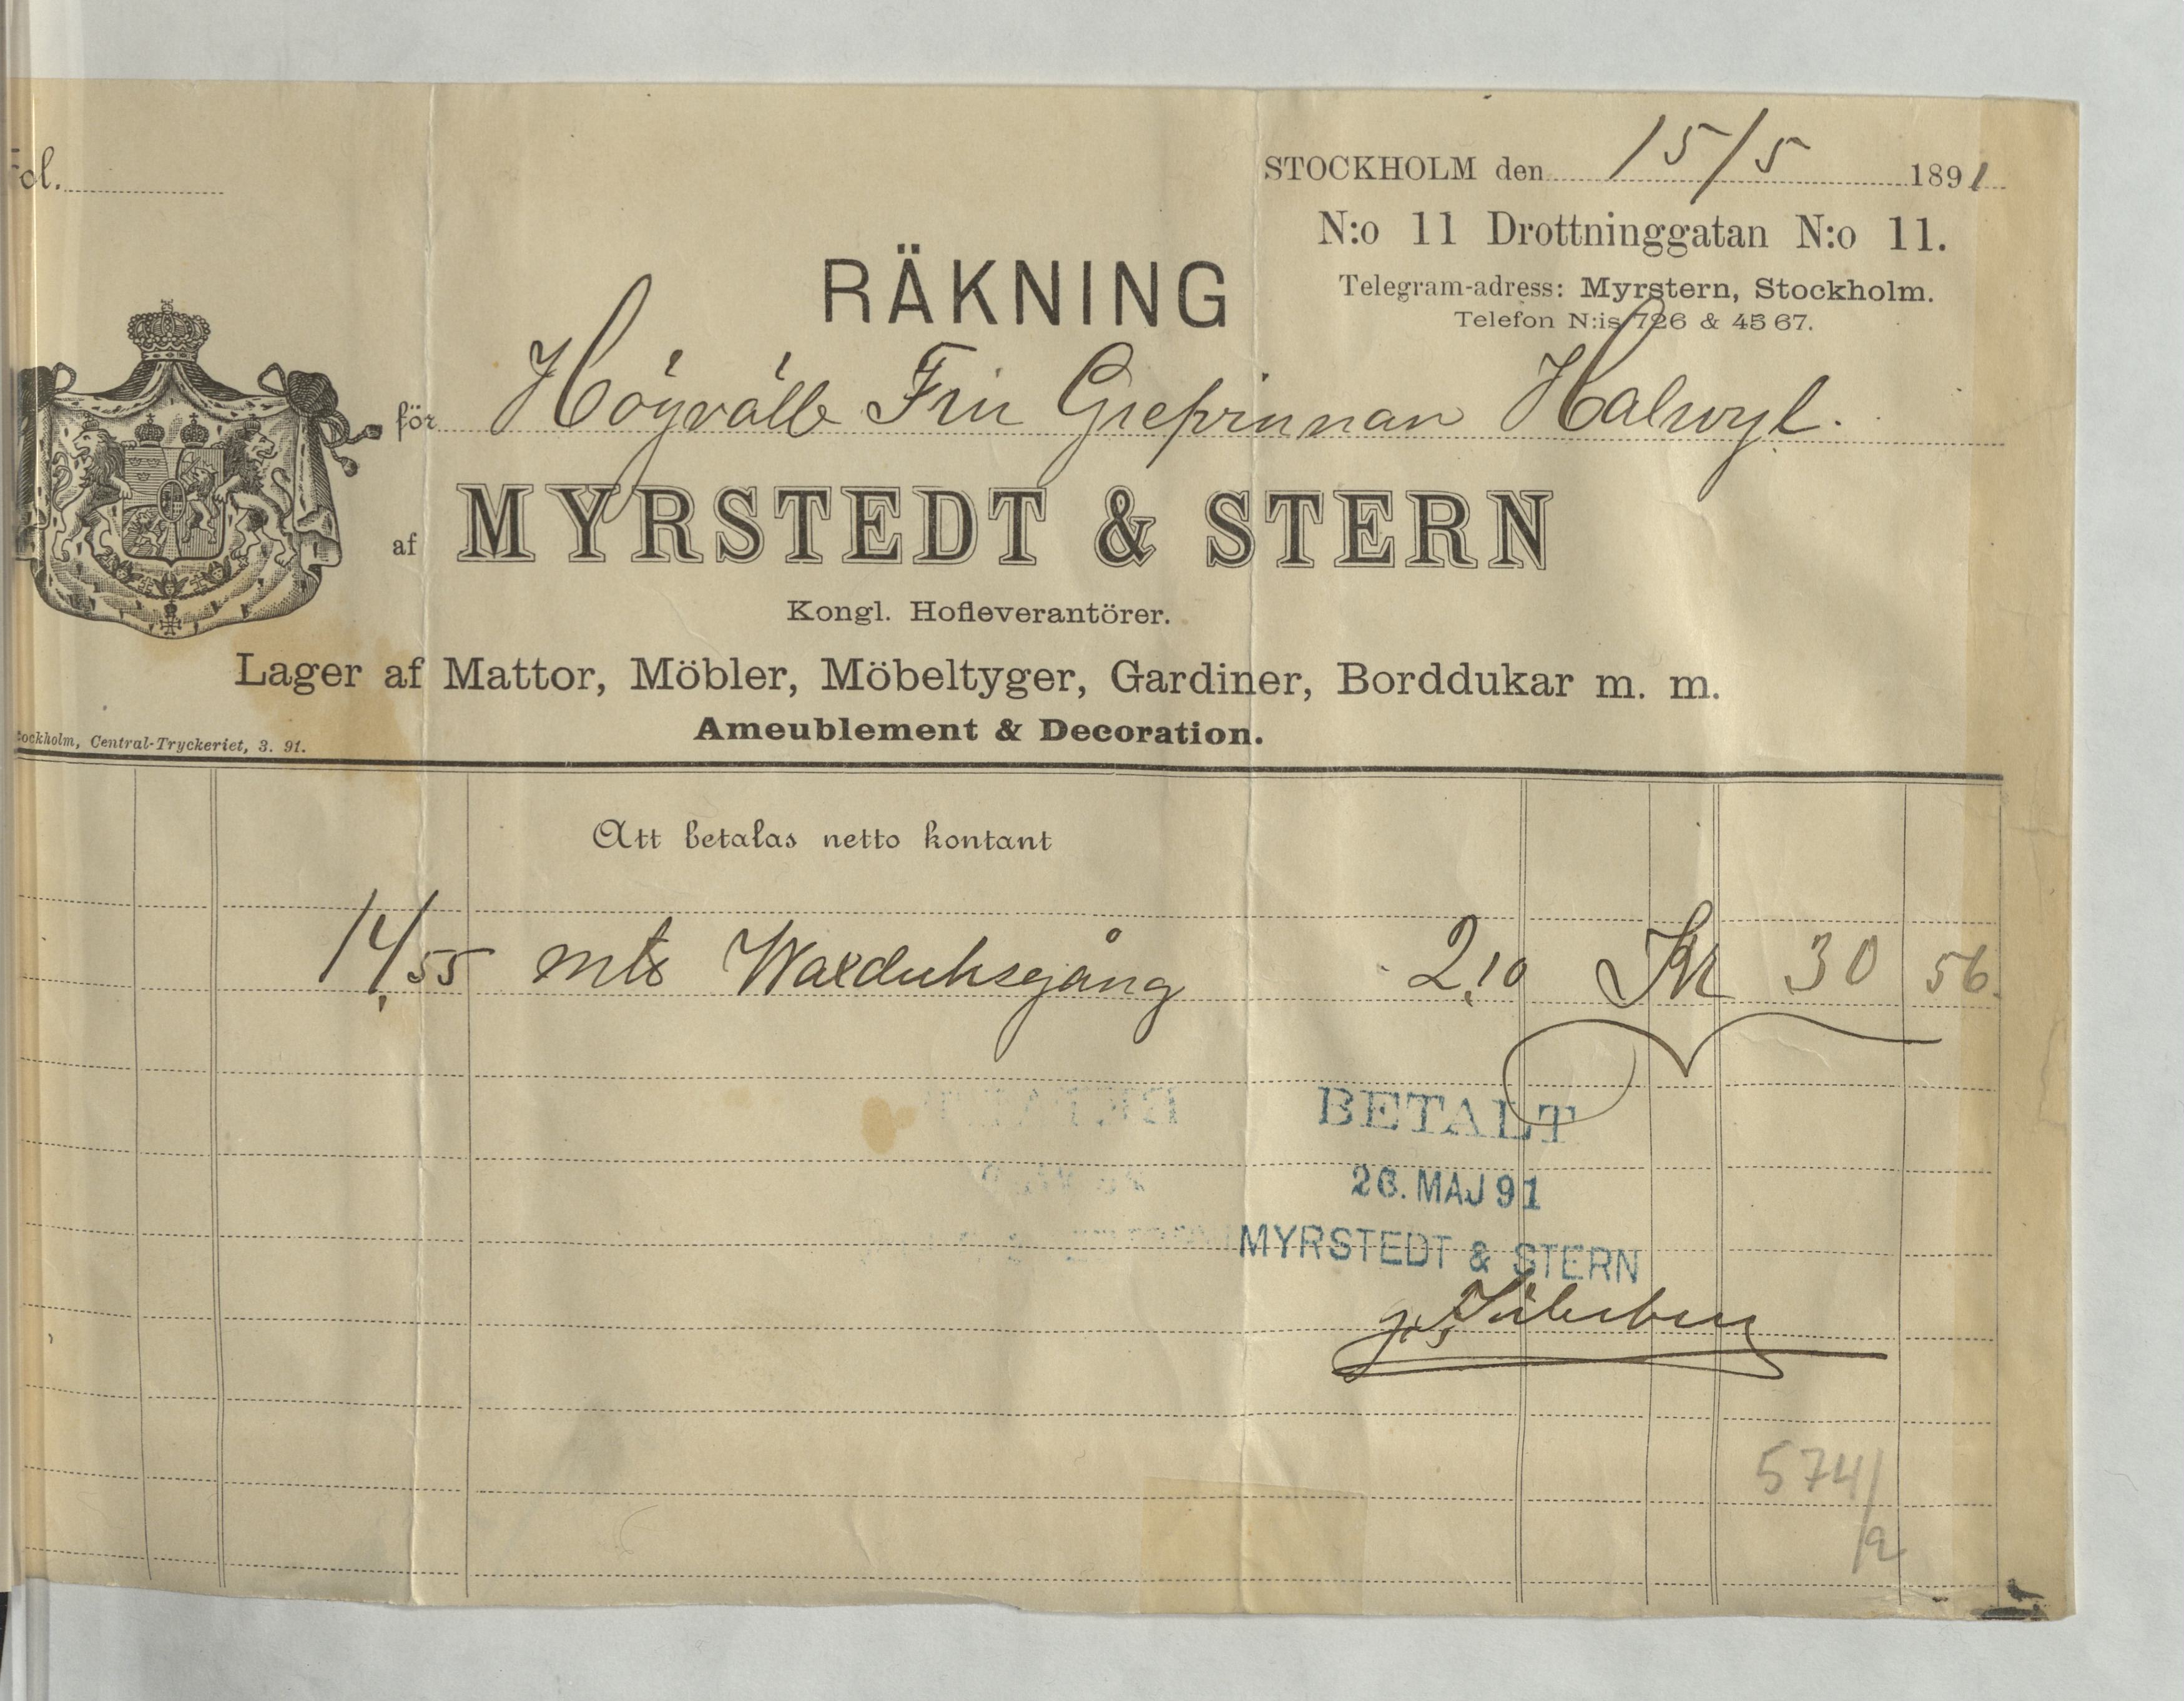 Fol.
STOCKHOLM den 15/5 1891
N:o 11 Drottninggatan N:o 11.
Telegram-adress: Myrstern, Stockholm.
Telefon N:is 726 & 45 67.
RÄKNING
för Högvälb Fru Grefvinnan Halwyl.
af MYRSTEDT & STERN
Kongl. Hofleverantörer.
Lager af Mattor, Möbler, Möbeltyger, Gardiner, Borddukar m. m.
Ameublement & Decoration.
Stockholm, Central-Tryckeriet, 3. 91.
Att betalas netto kontant
14,55 mts Waxduksgång 2,10 Kr 30 56.
BETALT
26. MAJ 91
MYRSTEDT & STERN
574/